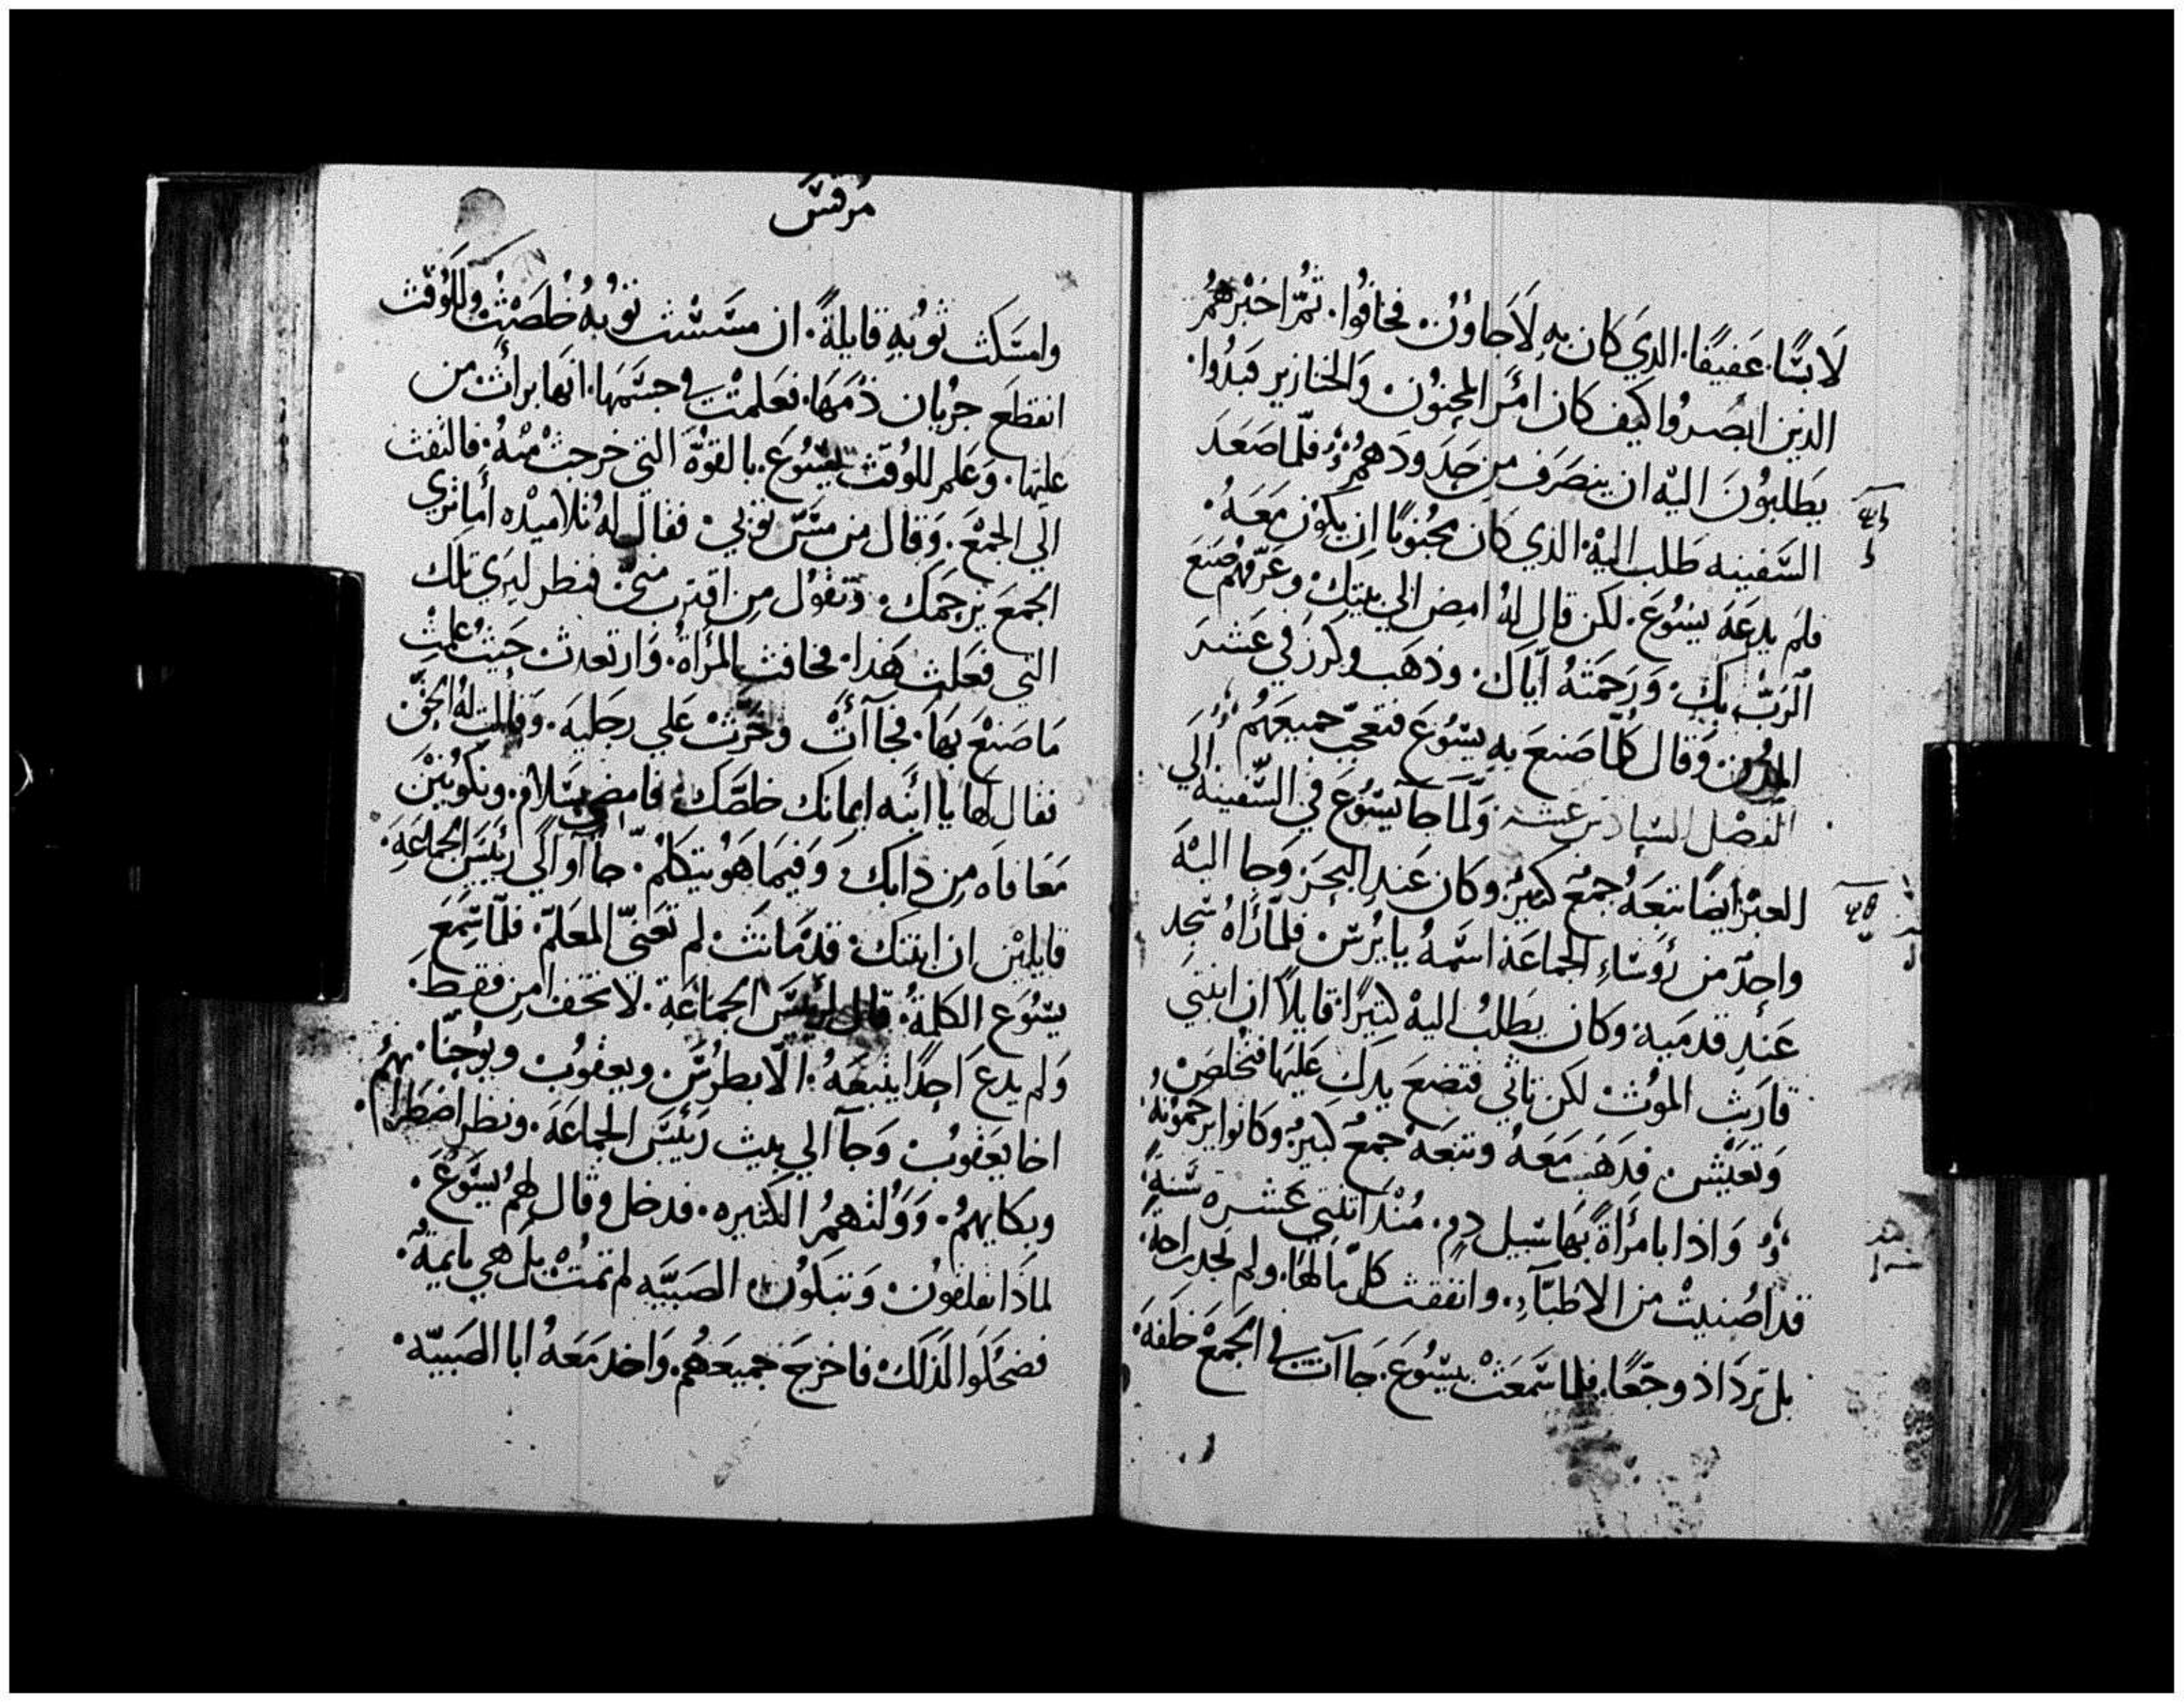 لَابسًا. عَفيفًا. الدَي كان بهِ لَاجاوُن. فخافوُا. ثمُّ اخبَرهُمُ
الدين ابصُروُا كيَف كان امُرَ المجنوُن وَالخنازير فبَدُوا.
يطَلبوُنَ اليْه ان ينصَرَف من حَدَودَهمُ فلّما صَعَدَ
السَّفينه طَلب اليْه الدي كان مجُنونًا ان يكوُن مَعَهُ.
فلَم يدعَهَ يسَوُعَ. لكن قال لهُ امِض الي بيَتِكَ وعَرّفهُم صُنعَ
الرَبّ بِك. وَرَحمَتهُ اّياك. وذهَب وكرزَ في عَشَرَ
المدُن وَقال كُلّما صَنعَ بهِ يسَّوُعَ فتعجّب جميعَهُم
الفصَل السَادسَ عَشر وَلّما جَا يسَّوُعَ في السَّفينه الي
العبْر ايضًا تبَعَهُ جمعْ كبيَر وكان عَندِ البحَر وَجا اليْهَ
واحِدّ من رُؤسَاءِ الجماعَة اسّمهُ يايرُسَ فلمّا رَاهُ سَجد
عَندِ قدمَيه وكان يطَلبُ اليهْ كثيَرًا. قايلاً ان ابنتي
قارَبت الموُت لكن تاتي فتضعَ يدكِ عَليَها فتخلصَ
وَتعَيش. فدهَبَ مَعَهُ وتبَعَهُ جمعُ كبيرُ وكانوا يزحموُنهُ
وَاذا بامرَأةً بهَا سَيل دمٍ. مُنْدَ اثنتي عَشره سَنةً
قد اضُنيتْ من الاطبَّآءِ. وانفقت كلّ مالهَا. ولم تجد راحة.
بل تزدَاد وجَعًا. فلما سَمَعَتْ بيسَّوُعَ. جَاآت في الجَمعْ خلفَهَ.
مُرقسَ
وامسَكت ثوُبهِ قايلةً. ان مسَّسَت ثوُبهُ خلصَتُ وللوُقت
انقطَع جرُيان دُمَهَا. فعَلمتْ في جسَّمهَا. انهَا برأت من
عَلتها. وَعَلم للوُقت يسَّوُعَ. بالقوُّة التي خرجتْ منْهُ. فالتفت
الي الجَمعْ. وَقال من مسَّ ثوُبي. فقال لهُ تلاميدْه أما تري
الجمعَ يزحمَك. وَتقوُل مِن اقتربَ مني فنطر ليرَي تلك
التي فعَلت هَذا. فخافت المرأة. وَارتعدت حَيثُ علمتِ
مَا صَنعْ بهَا. فجَاآتْ وخَرّت عَلي رجلَيهَ. وقالت لهُ الحَقّ.
فقال لَها يا ابنَه ايمانك خلصَّكْ فامضي بسَلامْ. وتكوُنيْن
مَعَافاه مِن دايَك. وَفيمَا هَو يتكلمُ. جاآوا الي رئيسَ الجماعَةِ.
قايليْن ان ابنتك قدَ مَاتت لم تعَنّي المعَلمّ. فلمّا سَّمَعَ
يسّوُعَ الكلمةُ. قال لرئيسَ الجماعَةِ. لا تخف امن فقط.
وَلم يدعَ احدًا يتبعَهُ. الّا بطرُسَ. ويعقوُب. ويوُحنّا.
اخا يعَقوُب وَجآ الي بيت رئيسَّ الجماعَةَ. ونظر اضطرابهمُ
وبكايهمُ. وَوَلولتهُمُ الكثيره. فدخل وَقال لهمُ يسّوَعَ.
لمادَا تقلقوُن وَتبكوُن الصَبيَّه لم تمتُ بل هَي نايمة.
فضحَكوَا لدَلك فاخرجَ جميعَهُمُ. وَاخد مَعَهُ ابا الصَبيّه.